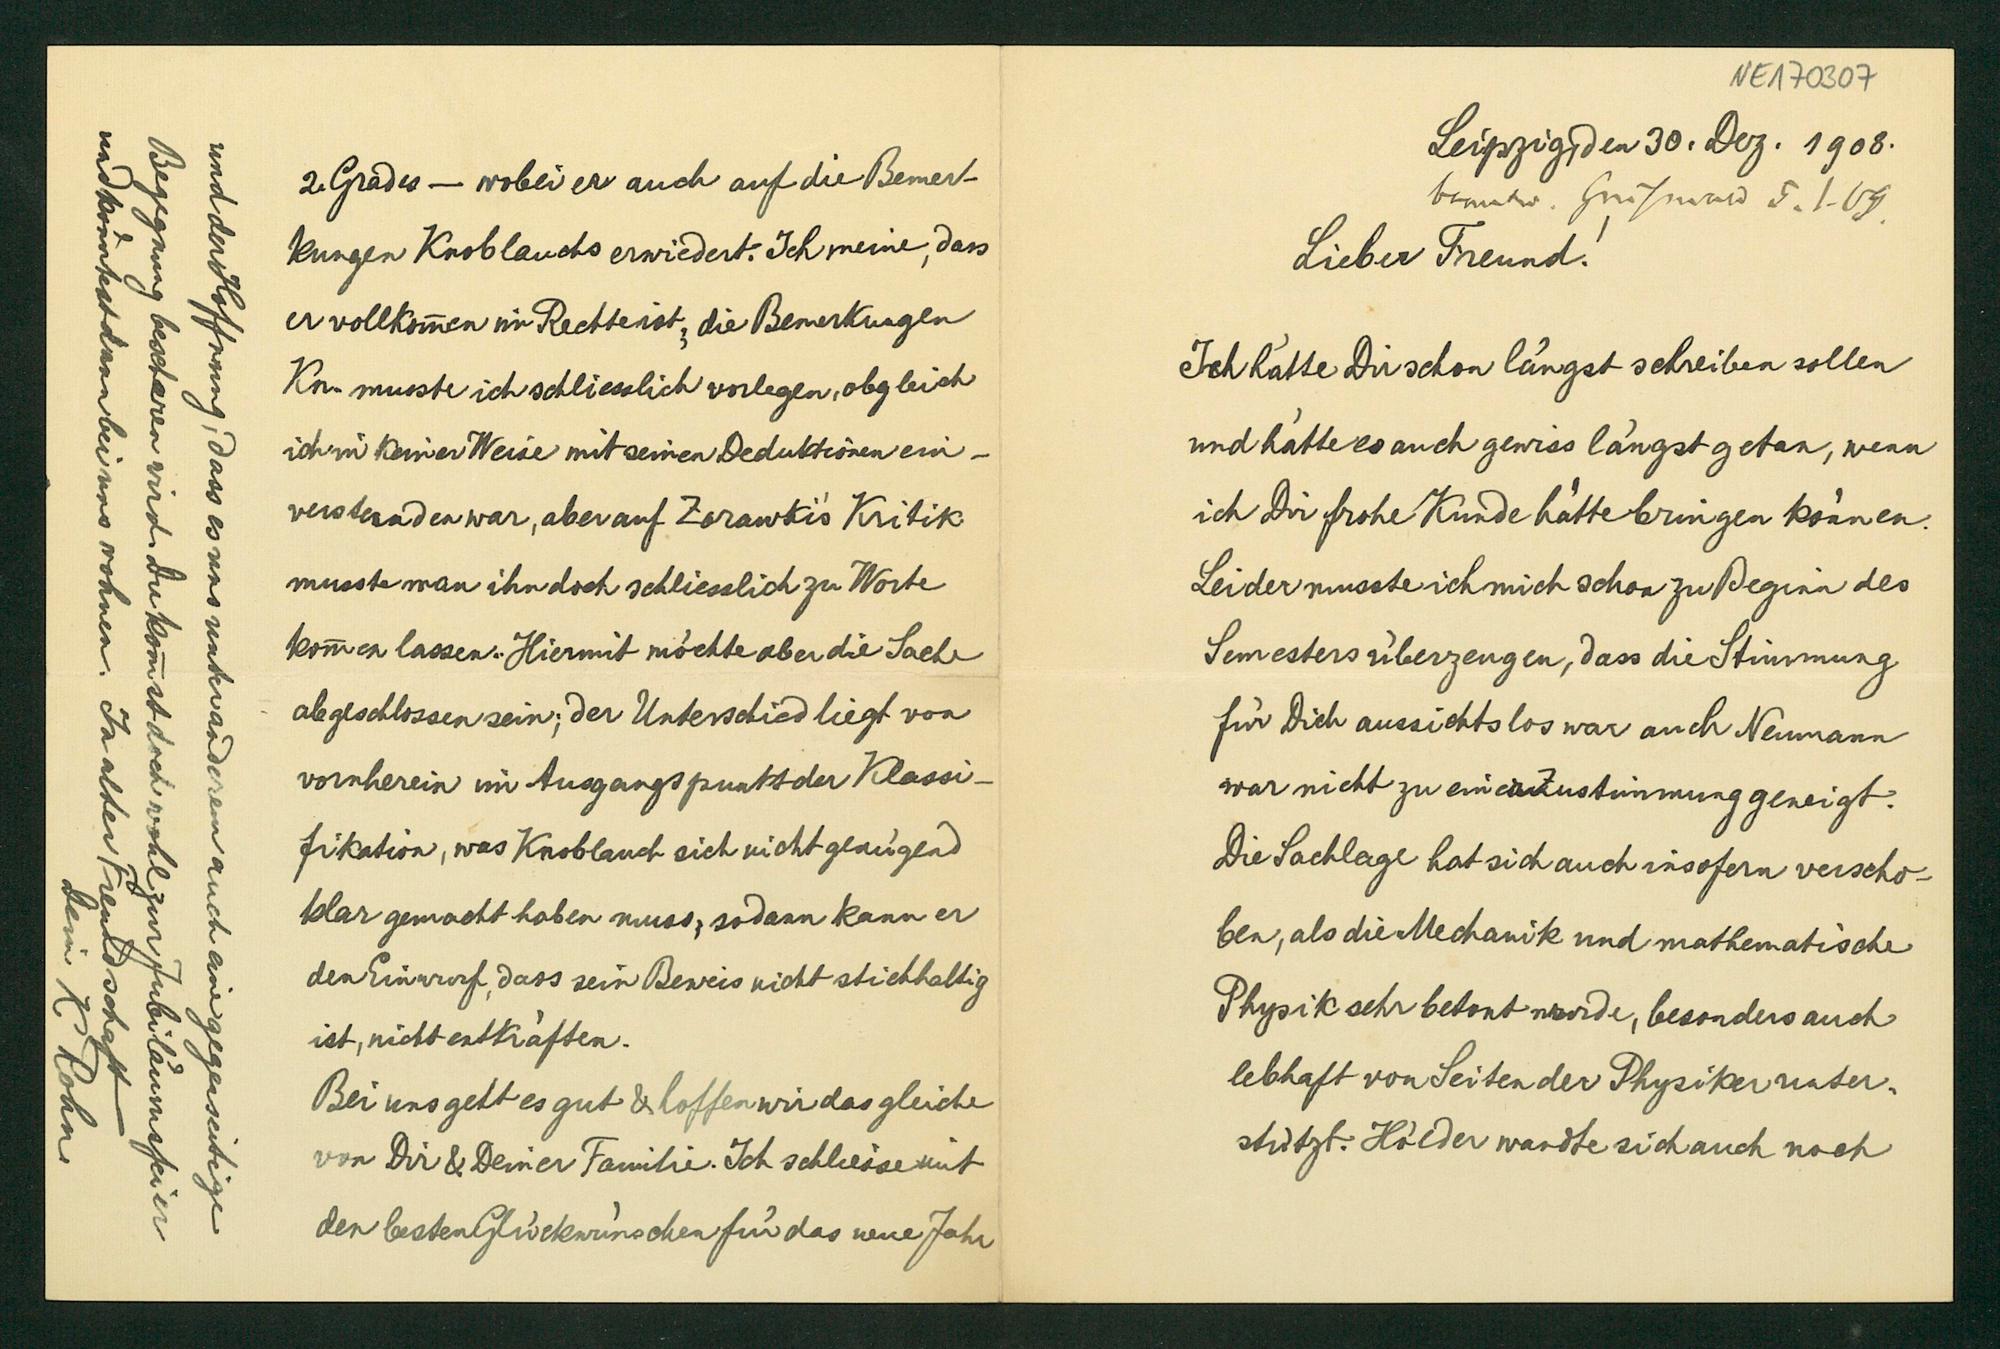 NE170307
Leipzig, den 30. Dez. 1908.
Lieber Freund!
Ich hätte Dir schon längst schreiben sollen
und hätte es auch gewiss längst getan, wenn
ich Dir frohe Kunde hätte bringen können.
Leider musste ich mich schon zu Beginn des
Semesters überzeugen, dass die Stimmung
für Dich aussichtslos war auch Neumann
war nicht zu einer Zustimmung geneigt.
Die Sachlage hat sich auch insofern verscho-
ben, als die Mechanik und mathematische
Physik sehr betont wurde, besonders auch
lebhaft von Seiten der Physiker unter-
stützt. Hölder wandte sich auch noch
2. Grades — wobei er auch auf die Bemer-
kungen Knoblauchs erwiedert. Ich meine, dass
er vollkom̄en im Rechte ist; die Bemerkungen
Kn. musste ich schliesslich vorlegen, obgleich
ich in keiner Weise mit seinen Deduktionen ein-
verstanden war, aber auf Zorawki's Kritik
musste man ihn doch schliesslich zu Worte
kom̄en lassen. Hiermit möchte aber die Sache
abgeschlossen sein; der Unterschied liegt von
vornherein im Ausgangspunkt der Klassi-
fikation, was Knoblauch sich nicht genügend
klar gemacht haben muss; sodann kann er
den Einwurf, dass sein Beweis nicht stichhaltig
ist, nicht entkräften.
Bei uns geht es gut & hoffen wir das gleiche
von Dir & Deiner Familie. Ich schliesse mit
den besten Glückwünschen für das neue Jahr
und der Hoffnung, dass es uns unter anderem auch eine gegenseitige
Begegnung bescheren wird. Du kom̄st doch wohl zur Jubiläumsfeier
und kön̄test dann bei uns wohnen. In alter Freundschaft
Dein K Rohn.